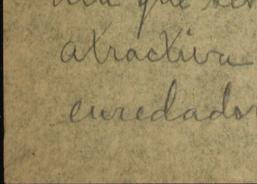 que ser
atractiva
enredador